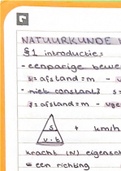 NATUURKUNDE
§1 introductie:
- eenparige bewe
s = afstand = m -
- niet constant: s =
s = afstand = m - v
s
v · t
+ km/h
kracht (N) eigensch
= een richting